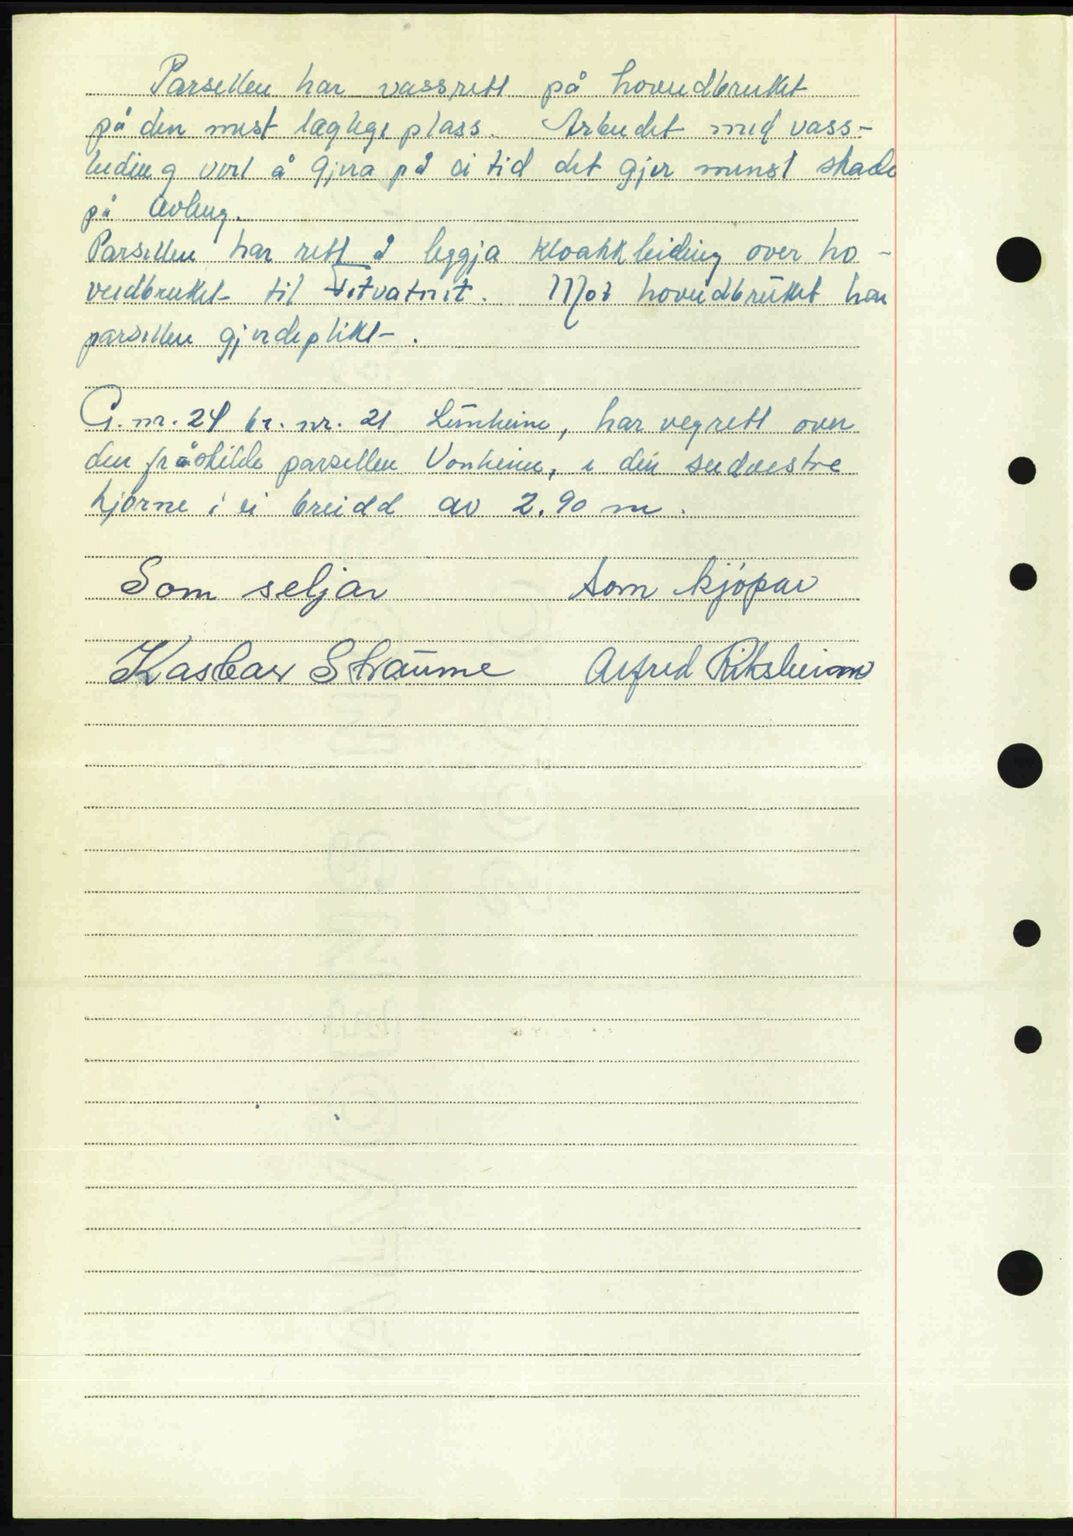 Parsellen har vassrett på hovudbruket
på den mest læglege plass. Arbeidet med vass-
leiding vert å gjera på ei tid det gjer minst skade
på avling.
Parsellen har rett å leggja kloakkleiding over ho-
vudbruket til vatnet. Mot hovudbruket har
parsellen gjerdeplikt.
G. nr. 24 br. nr. 21 Lünheim, har vegrett over
den fråskilde parsellen Vonheim, i den sudvestre
hjørne i ei breidd av 2.90 m.
Som seljar
Som kjøpar
Kasbar Straume
Alfred Riksheim